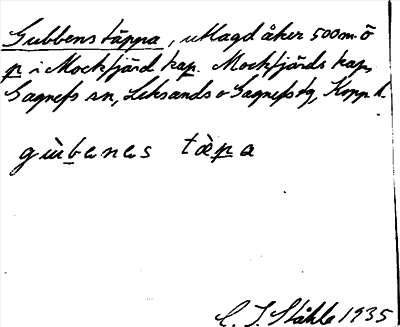 Gubbens täppa, utlagd åker 500 m. ö
p i Mockfjärd kap. Mockfjärds kap,
Gagnefs sn, Leksands o Gagnefs tg, Kopp. l.
gu̇̀benes tȧ̀pa
C. I. Ståhle 1935